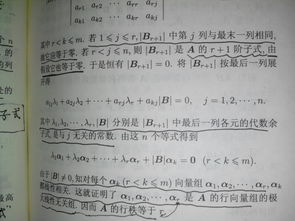 a_{r1} ⋯ a_{rr} a_{rj}
a_{k1} ⋯ a_{kr} a_{kj}
其中 r<k≤m. 若 1≤j≤r, |B_{r+1}| 中第 j 列与最末一列相同,
故它应等于零. 若 r<j≤n, 则 |B_{r+1}| 是 A 的 r+1 阶子式, 由
假设它也等于零. 于是恒有 |B_{r+1}|=0. 将 |B_{r+1}| 按最后一列展
开得
a_{1j}λ_1+a_{2j}λ_2+⋯+a_{rj}λ_r+a_{kj}|B|=0, j=1,2,⋯,n.
其中 λ_1,λ_2,⋯,λ_r,|B| 分别是 |B_{r+1}| 中最后一列各元的代数余
子式, 是与 j 无关的常数. 由这 n 个等式得到
λ_1α_1+λ_2α_2+⋯+λ_rα_r+|B|α_k=0 (r<k≤m).
由于 |B|≠0, 知对每个 α_k (r<k≤m) 向量组 α_1,α_2,⋯,α_r,α_k
都线性相关. 这就证明了 α_1,α_2,⋯,α_r 是 A 的行向量组的极
大线性无关组, 因而 A 的行秩等于 r.
子式